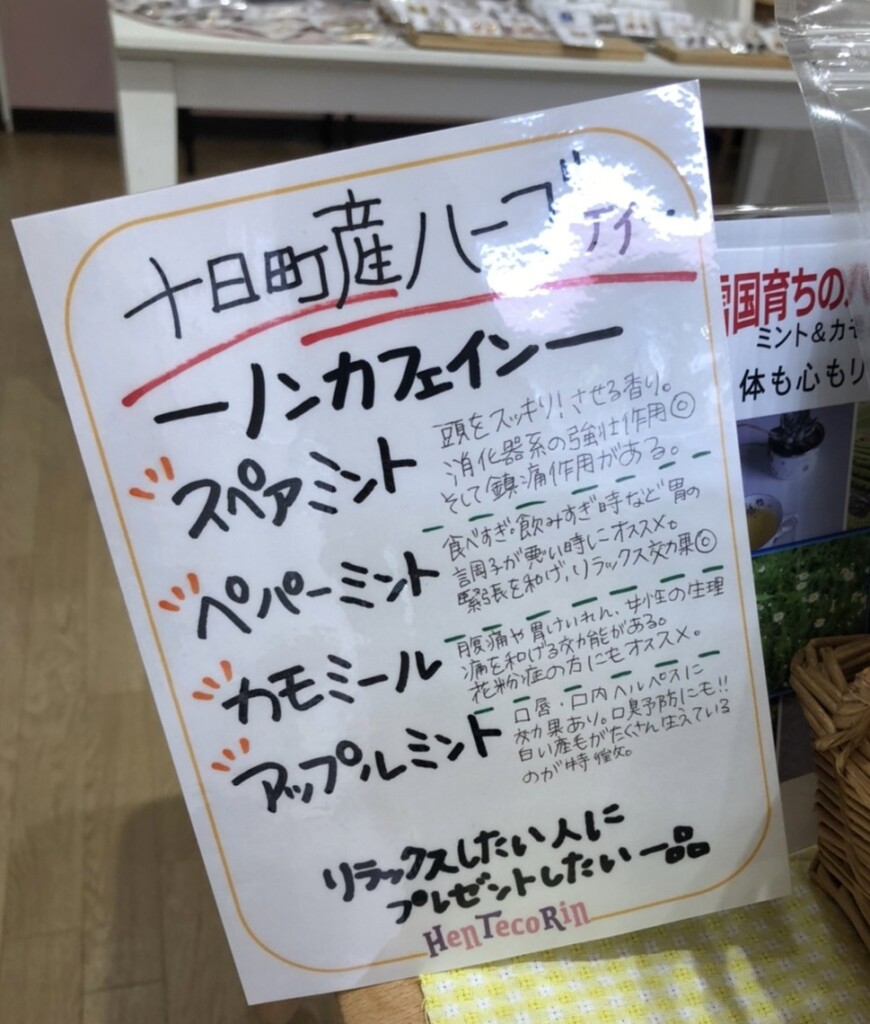 十日町産ハーブティー
ーノンカフェインー
スペアミント
頭をスッキリ!させる香り。
消化器系の強壮作用◎
そして鎮痛作用がある。
ペパーミント
食べすぎ。飲みすぎ時など胃の
調子が悪い時にオススメ。
緊張を和げ,リラックス効果◎
カモミール
腹痛や胃けいれん、女性の生理
痛を和げる効能がある。
花粉症の方にもオススメ。
アップルミント
口唇・口内ヘルペスに
効果あり。口臭予防にも!!
白い産毛がたくさん生えている
のが特徴。
リラックスしたい人に
プレゼントしたい一品
HenTecoRin
国育ちの
ミント&カモ
体も心もリ